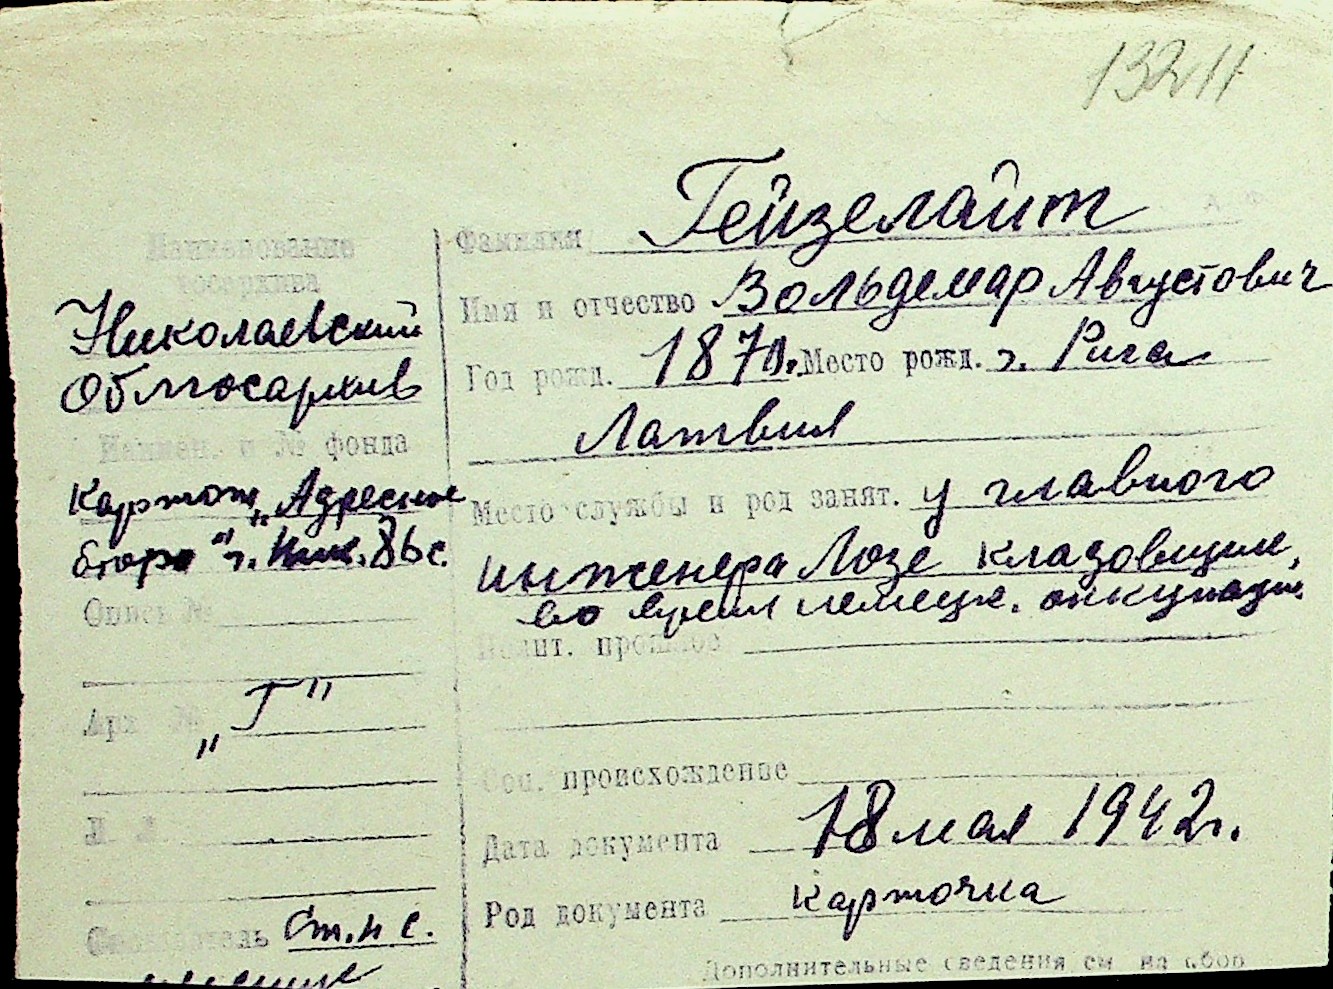 13211
Наименование
госархива
Николаевский
Облгосархив
Наимен. и № фонда
Картот. „Адресное
бюро" г. Ник.
Опись №
Арх №
„Г"
Л. Л.
Составитель Ст. н. с.
Фамилия Гейзелайт
Имя и отчество Вольдемар Августович
Год рожд. 1870г. Место рожд. г. Рига
Латвия
Место службы и род занят. у главного
инженера Лозе кладовщик,
во время немецк. оккупации.
Полит. прошлое
Соц. происхождение
Дата документа 18 мая 1942г.
Род документа карточка
Дополнительные сведения см на обор